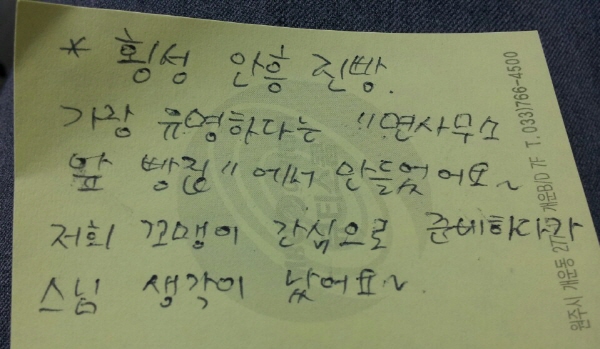 * 횡성 안흥 진빵.
가장 유명하다는 "면사무소
앞 빵집"에서 만들었어요~
저희 꼬맹이 간식으로 준비하다가
스님 생각이 났어요~
원주시 개운동 개운B/D 7F T. 033)766-4500